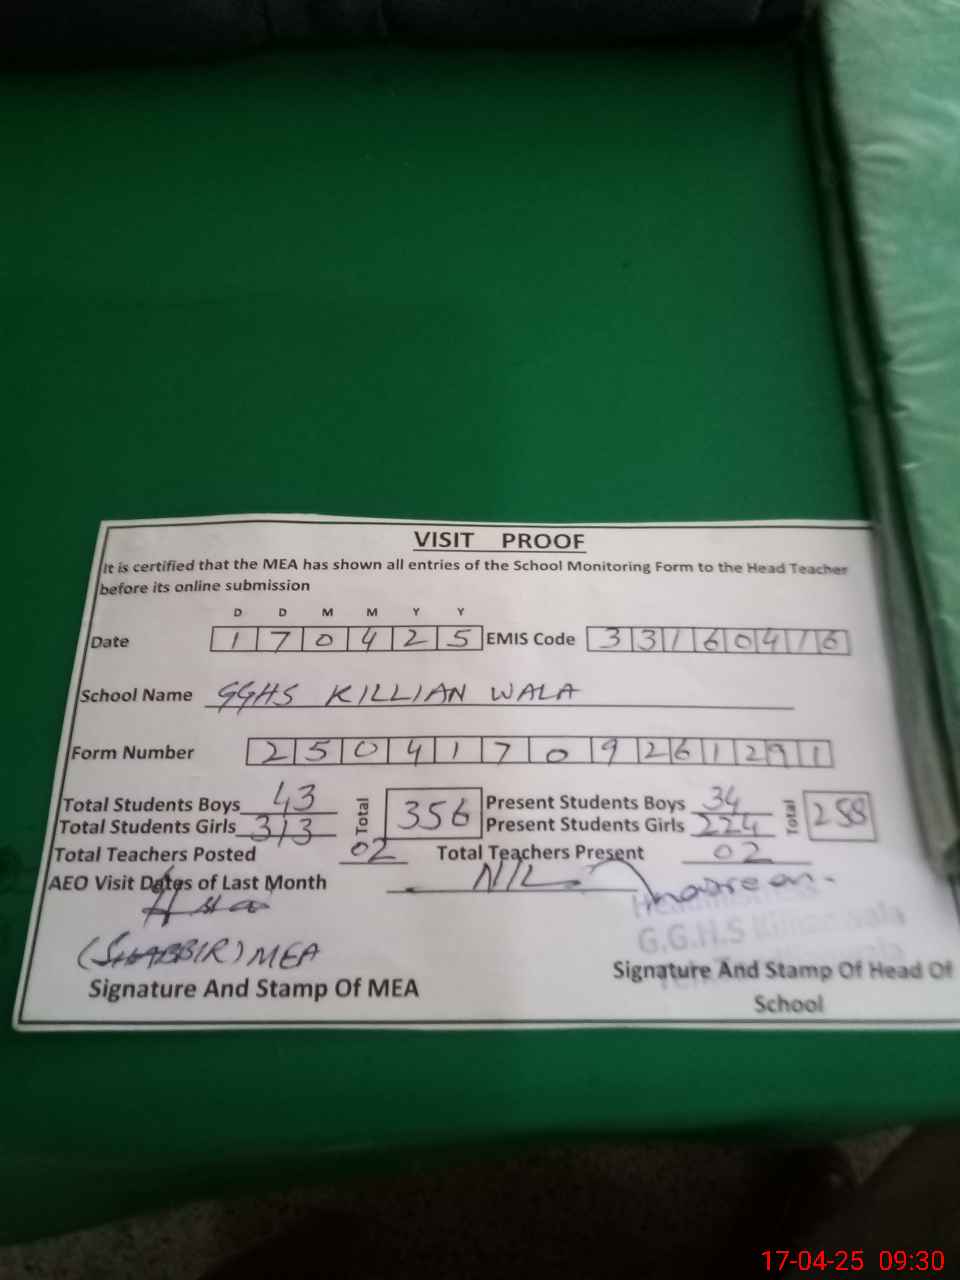 VISIT PROOF
It is certified that the MEA has shown all entries of the School Monitoring Form to the Head Teacher
before its online submission
D D M M Y Y
Date 1 7 0 4 2 5 EMIS Code 3 3 1 6 0 4 1 6
School Name GGHS KILLIAN WALA
Form Number 2 5 0 4 1 7 0 9 2 6 1 2 9 1
Total Students Boys 43 Total 356 Present Students Boys 34 Total 258
Total Students Girls 313 Present Students Girls 224
Total Teachers Posted 02 Total Teachers Present 02
AEO Visit Dates of Last Month NIL
G.G.H.S
(SHABBIR) MEA
Signature And Stamp Of MEA
Signature And Stamp Of Head Of
School
17-04-25 09:30